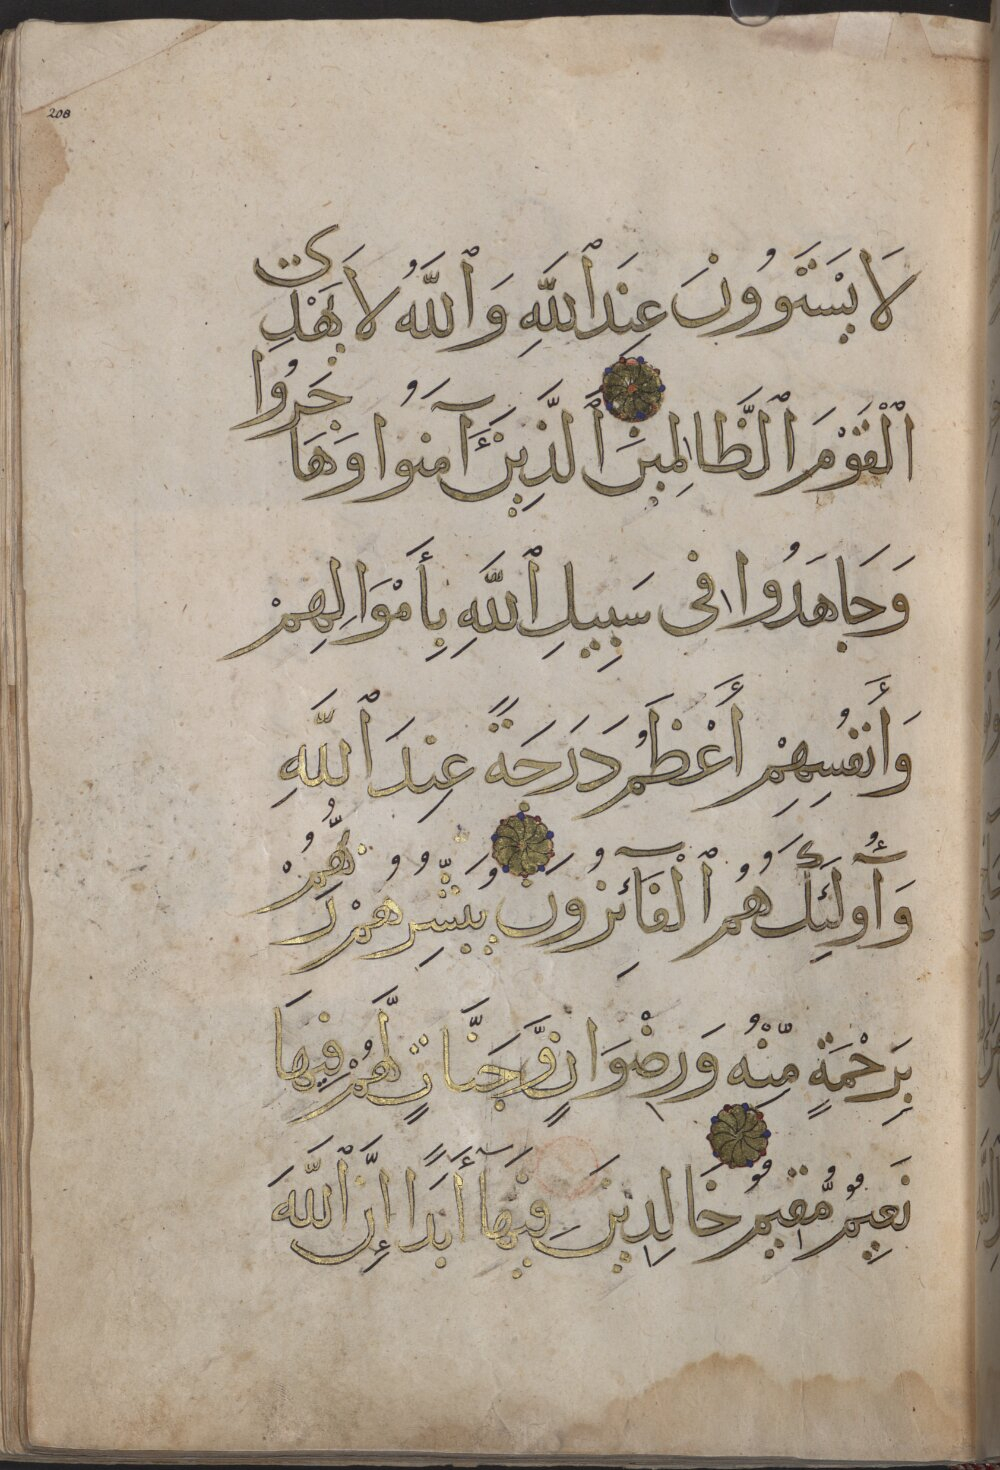 208
لَا يَسْتَوُونَ عِنْدَ ٱللَّهِ وَٱللَّهُ لَا يَهْدِي
ٱلْقَوْمَ ٱلظَّالِمِينَ ٱلَّذِينَ آمَنُوا وَهَاجَرُوا
وَجَاهَدُوا فِى سَبِيلِ ٱللَّهِ بِأَمْوَالِهِمْ
وَأَنفُسِهِمْ أَعْظَمُ دَرَجَةً عِندَ ٱللَّهِ
وَأُولَئِكَ هُمُ ٱلْفَآئِزُونَ يُبَشِّرُهُمْ رَبُّهُمْ
بِرَحْمَةٍ مِّنْهُ وَرِضْوَانٍ وَّجَنَّاتٍ لَّهُمْ فِيهَا
نَعِيمٌ مُّقِيمٌ خَالِدِينَ فِيهَآ أَبَدًا إِنَّ ٱللَّهَ